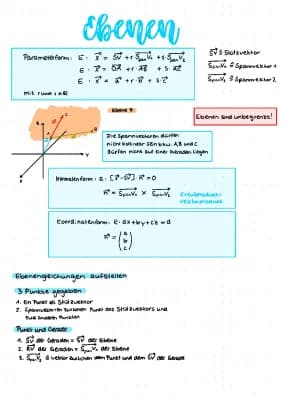 Ebenen
Parameterform: E: x⃗ = SV⃗ + r·SpanV₁⃗ + s·SpanV₂⃗
E: x⃗ = OA⃗ + r·AB⃗ + s·AC⃗
E: x⃗ = a⃗ + r·u⃗ + s·v⃗
mit r und s ∈ ℝ
SV⃗ ≙ Stützvektor
SpanV₁⃗ ≙ Spannvektor 1
SpanV₂⃗ ≙ Spannvektor 2
Ebene E
Ebenen sind unbegrenzt!
Die Spannvektoren dürfen
nicht kollinear sein bzw. A, B und C
dürfen nicht auf einer Geraden liegen
Normalenform: E: [x⃗ - SV⃗] · n⃗ = 0
n⃗ = SpanV₁⃗ × SpanV₂⃗
Kreuzprodukt/
Vektorprodukt
Coordinatenform: E: ax + by + cz = d
n⃗ = (a b c)
Ebenengleichungen aufstellen
3 Punkte gegeben
1. Ein Punkt als Stützvektor
2. Spannvektoren zwischen Punkt des Stützvektors und
den anderen Punkten
Punkt und Gerade
1. SV⃗ der Geraden = SV⃗ der Ebene
2. RV⃗ der Geraden = SpanV₁⃗ der Ebene
3. SpanV₂⃗ ≙ Vektor zwischen dem Punkt und dem SV⃗ der Gerade